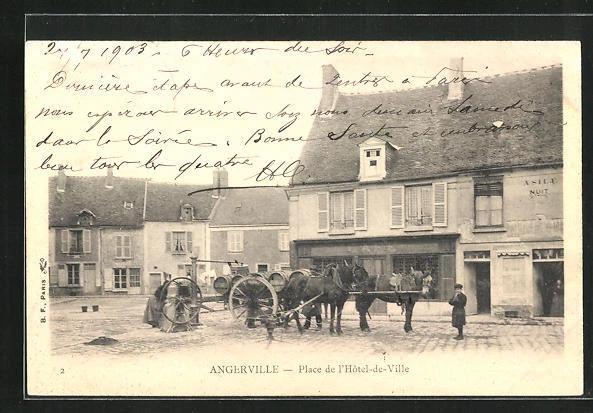 24/7 1903 6 Heures du Soir
Dernière étape avant de rentrer à Paris
nous espérons arriver chez nous demain Samedi
dans la Soirée. Bonne Santé et
bien tous les quatre
ASILE
NUIT
B. F., PARIS
2
ANGERVILLE — Place de l'Hôtel-de-Ville